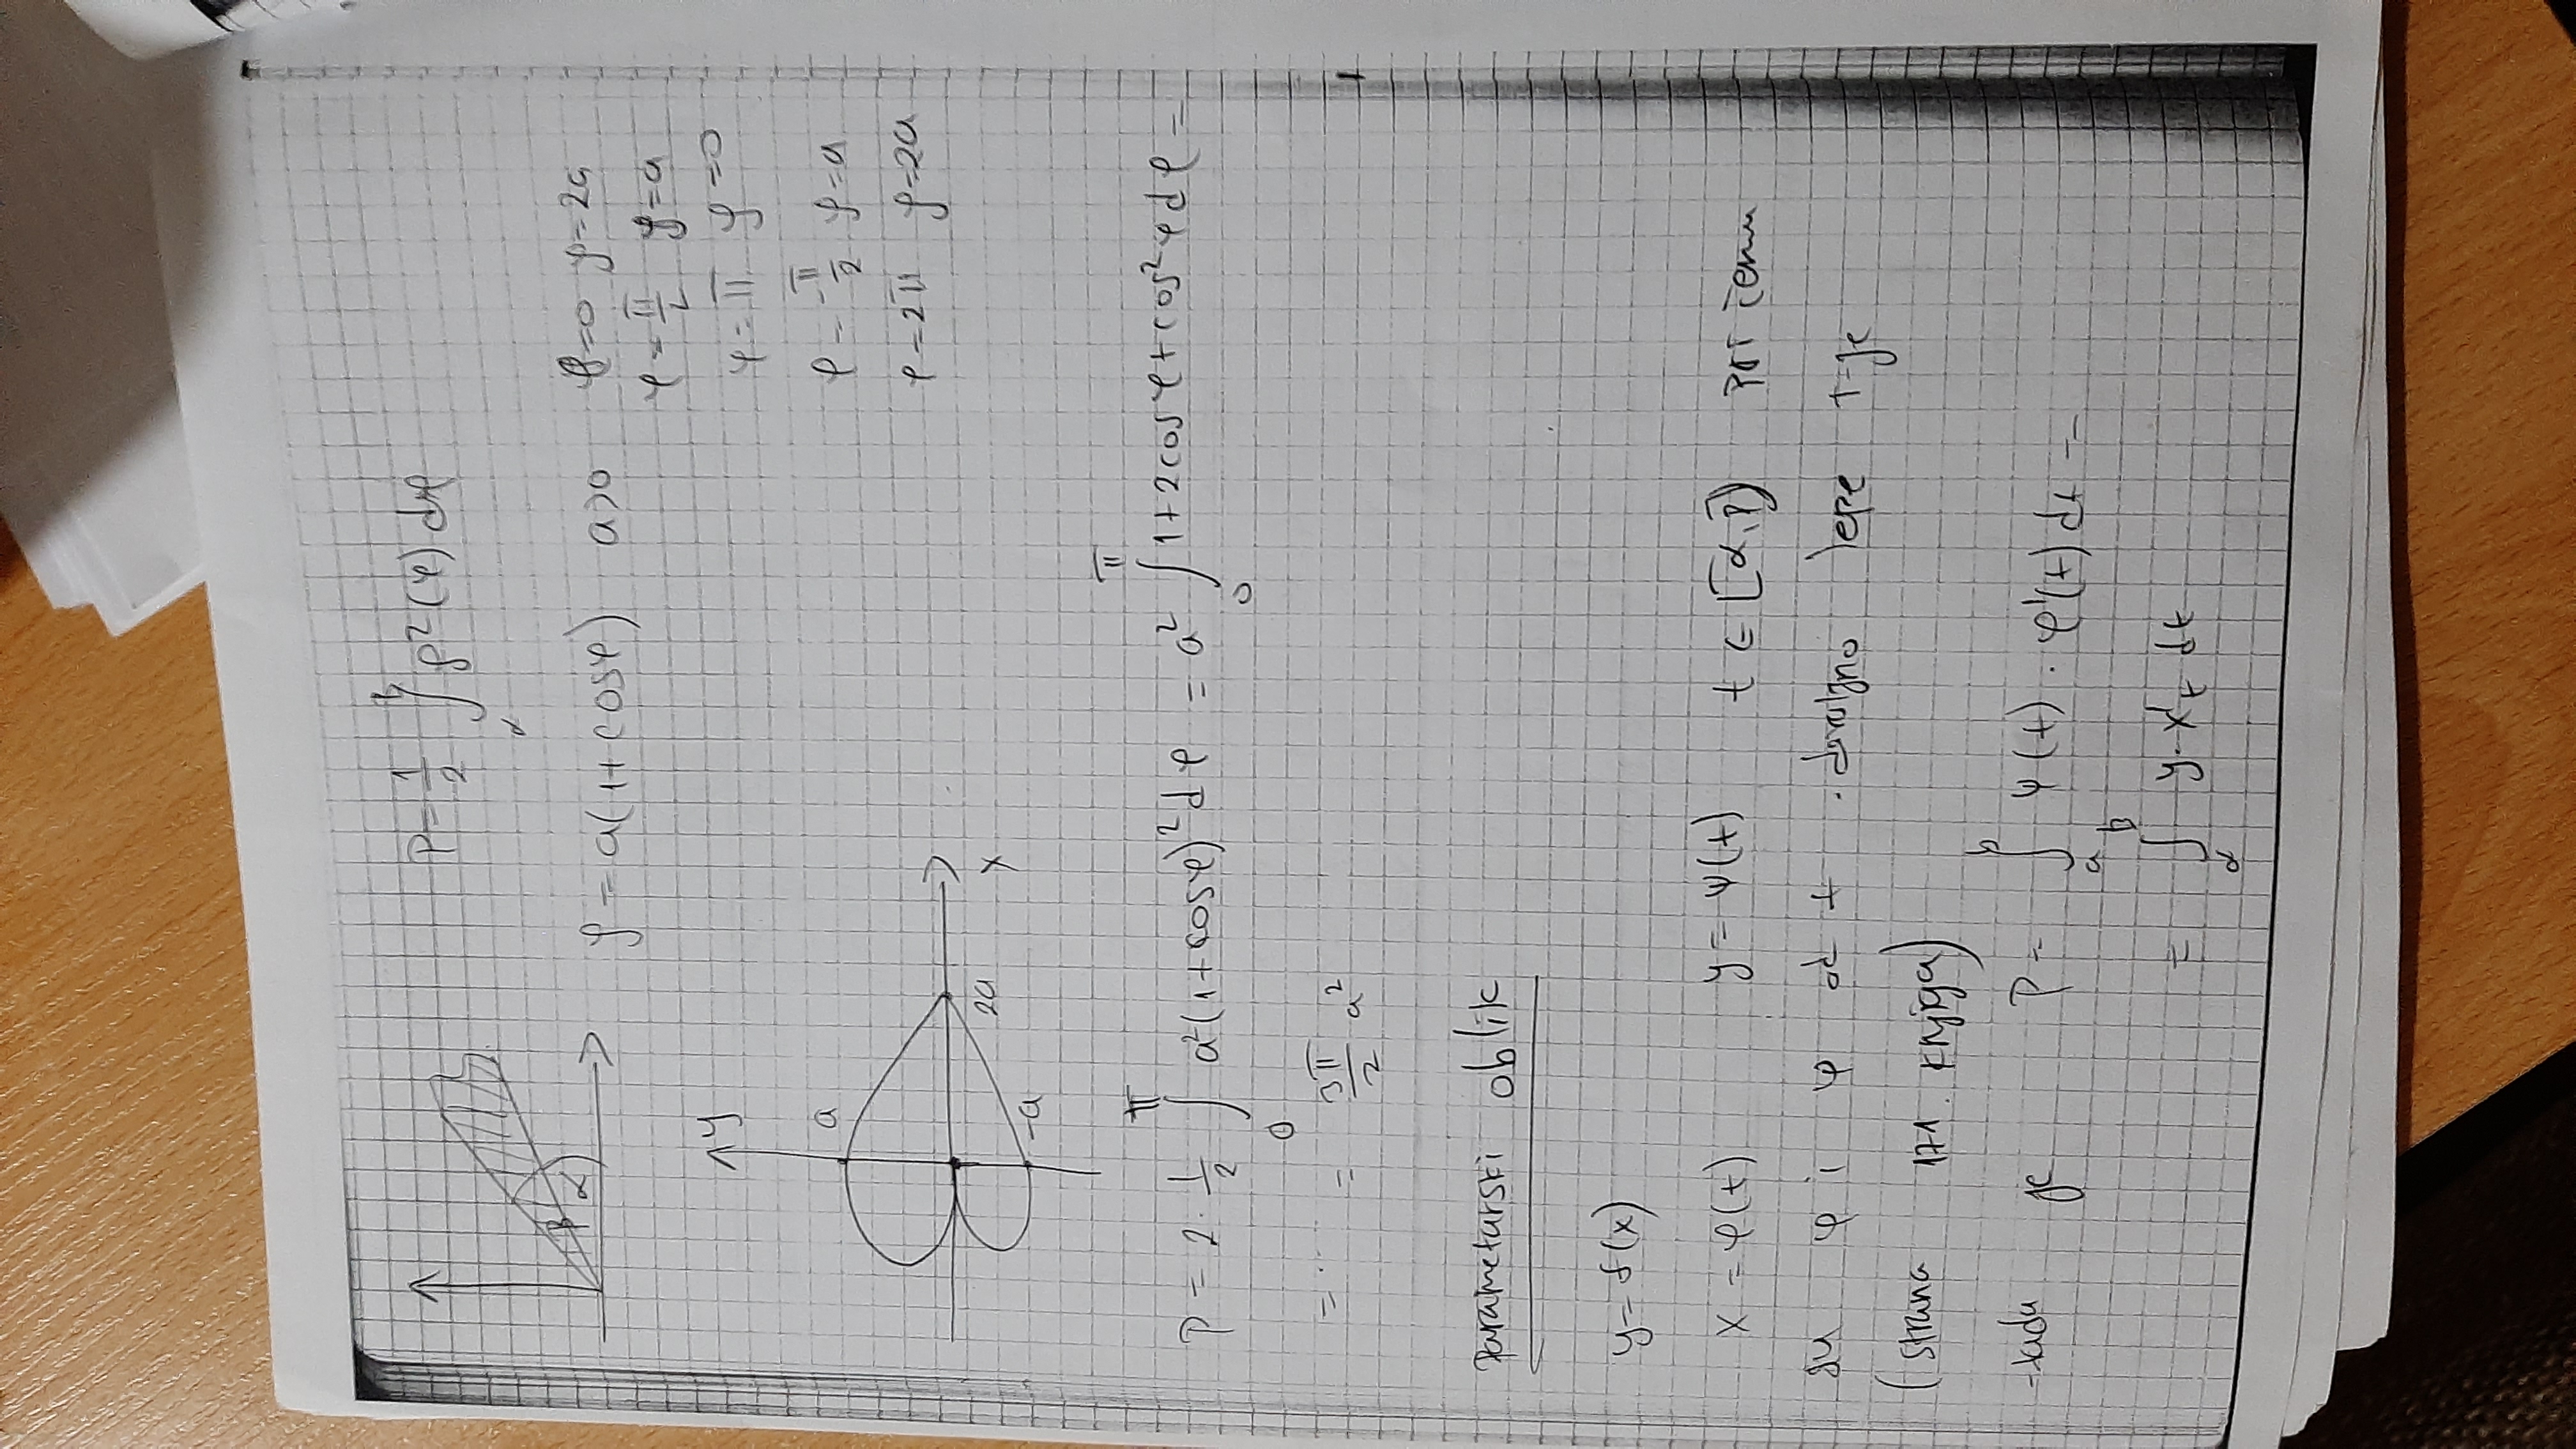 P = 1/2 ∫_α^β ρ²(φ) dφ
β α
ρ = a(1+cosφ) a>0
φ=0 ρ=2a
φ = π/2 ρ=a
φ = π ρ=0
φ = -π/2 ρ=a
φ=2π ρ=2a
y
a
2a x
-a
P = 2 · 1/2 ∫_0^π a²(1+cosφ)² dφ = a² ∫_0^π 1+2cosφ+cos²φ dφ =
= ... = 3π/2 a²
Parametarski oblik
y=f(x)
x = φ(t) y = ψ(t) t ∈ [α,β] pri čemu
su φ i ψ od t dovoljno lepe f-je
(strana 171. knjiga)
-tada je P = ∫_a^b ψ(t) · φ'(t) dt =
= ∫_α^β y·x'_t dt